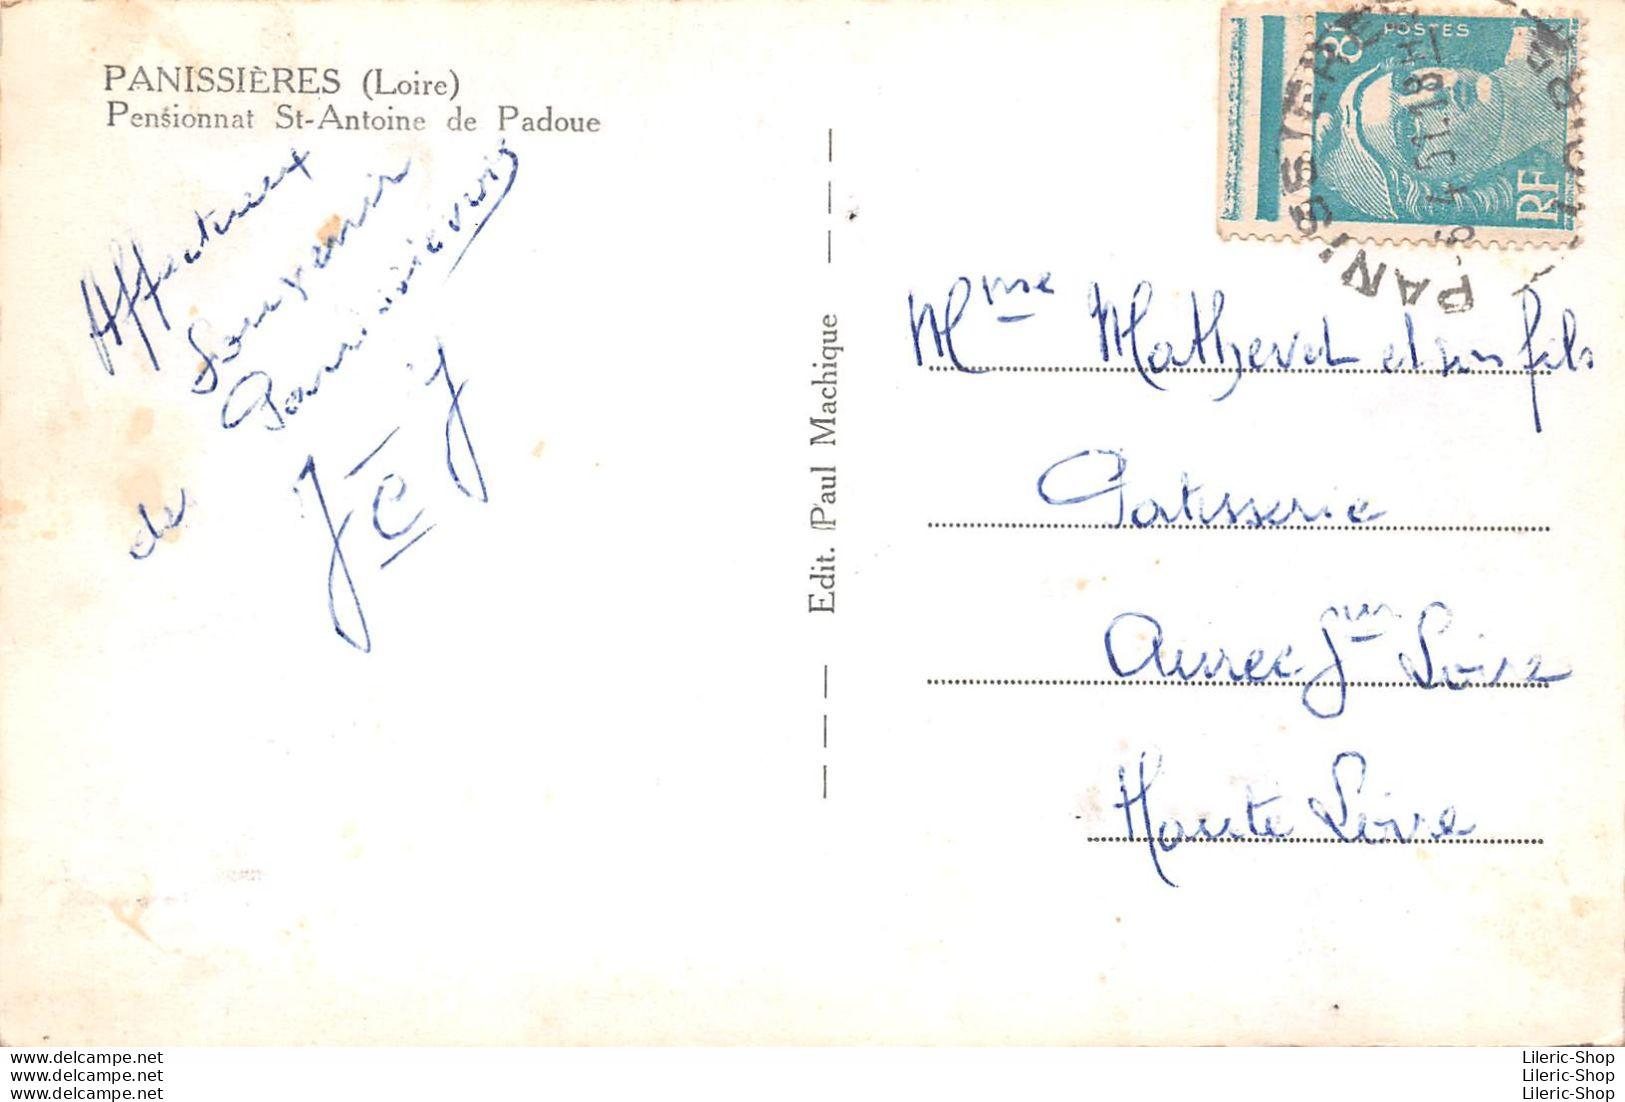 PANISSIÈRES (Loire)
Pensionnat St-Antoine de Padoue
Affectueux
Souvenir
Panissièrois
de J C J
Edit. Paul Machique
8F
POSTES
RF
PANISSIERES
LOIRE
18H
4-5
Mme Mathevet et son fils
Patisserie
Aurec sur Loire
Haute Loire
www.delcampe.net
www.delcampe.net
www.delcampe.net
Lileric-Shop
Lileric-Shop
Lileric-Shop